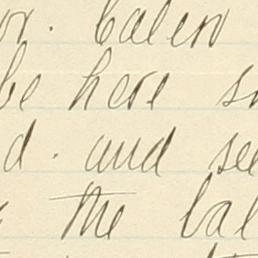 or. Calew
be here s
d. and see
the bal